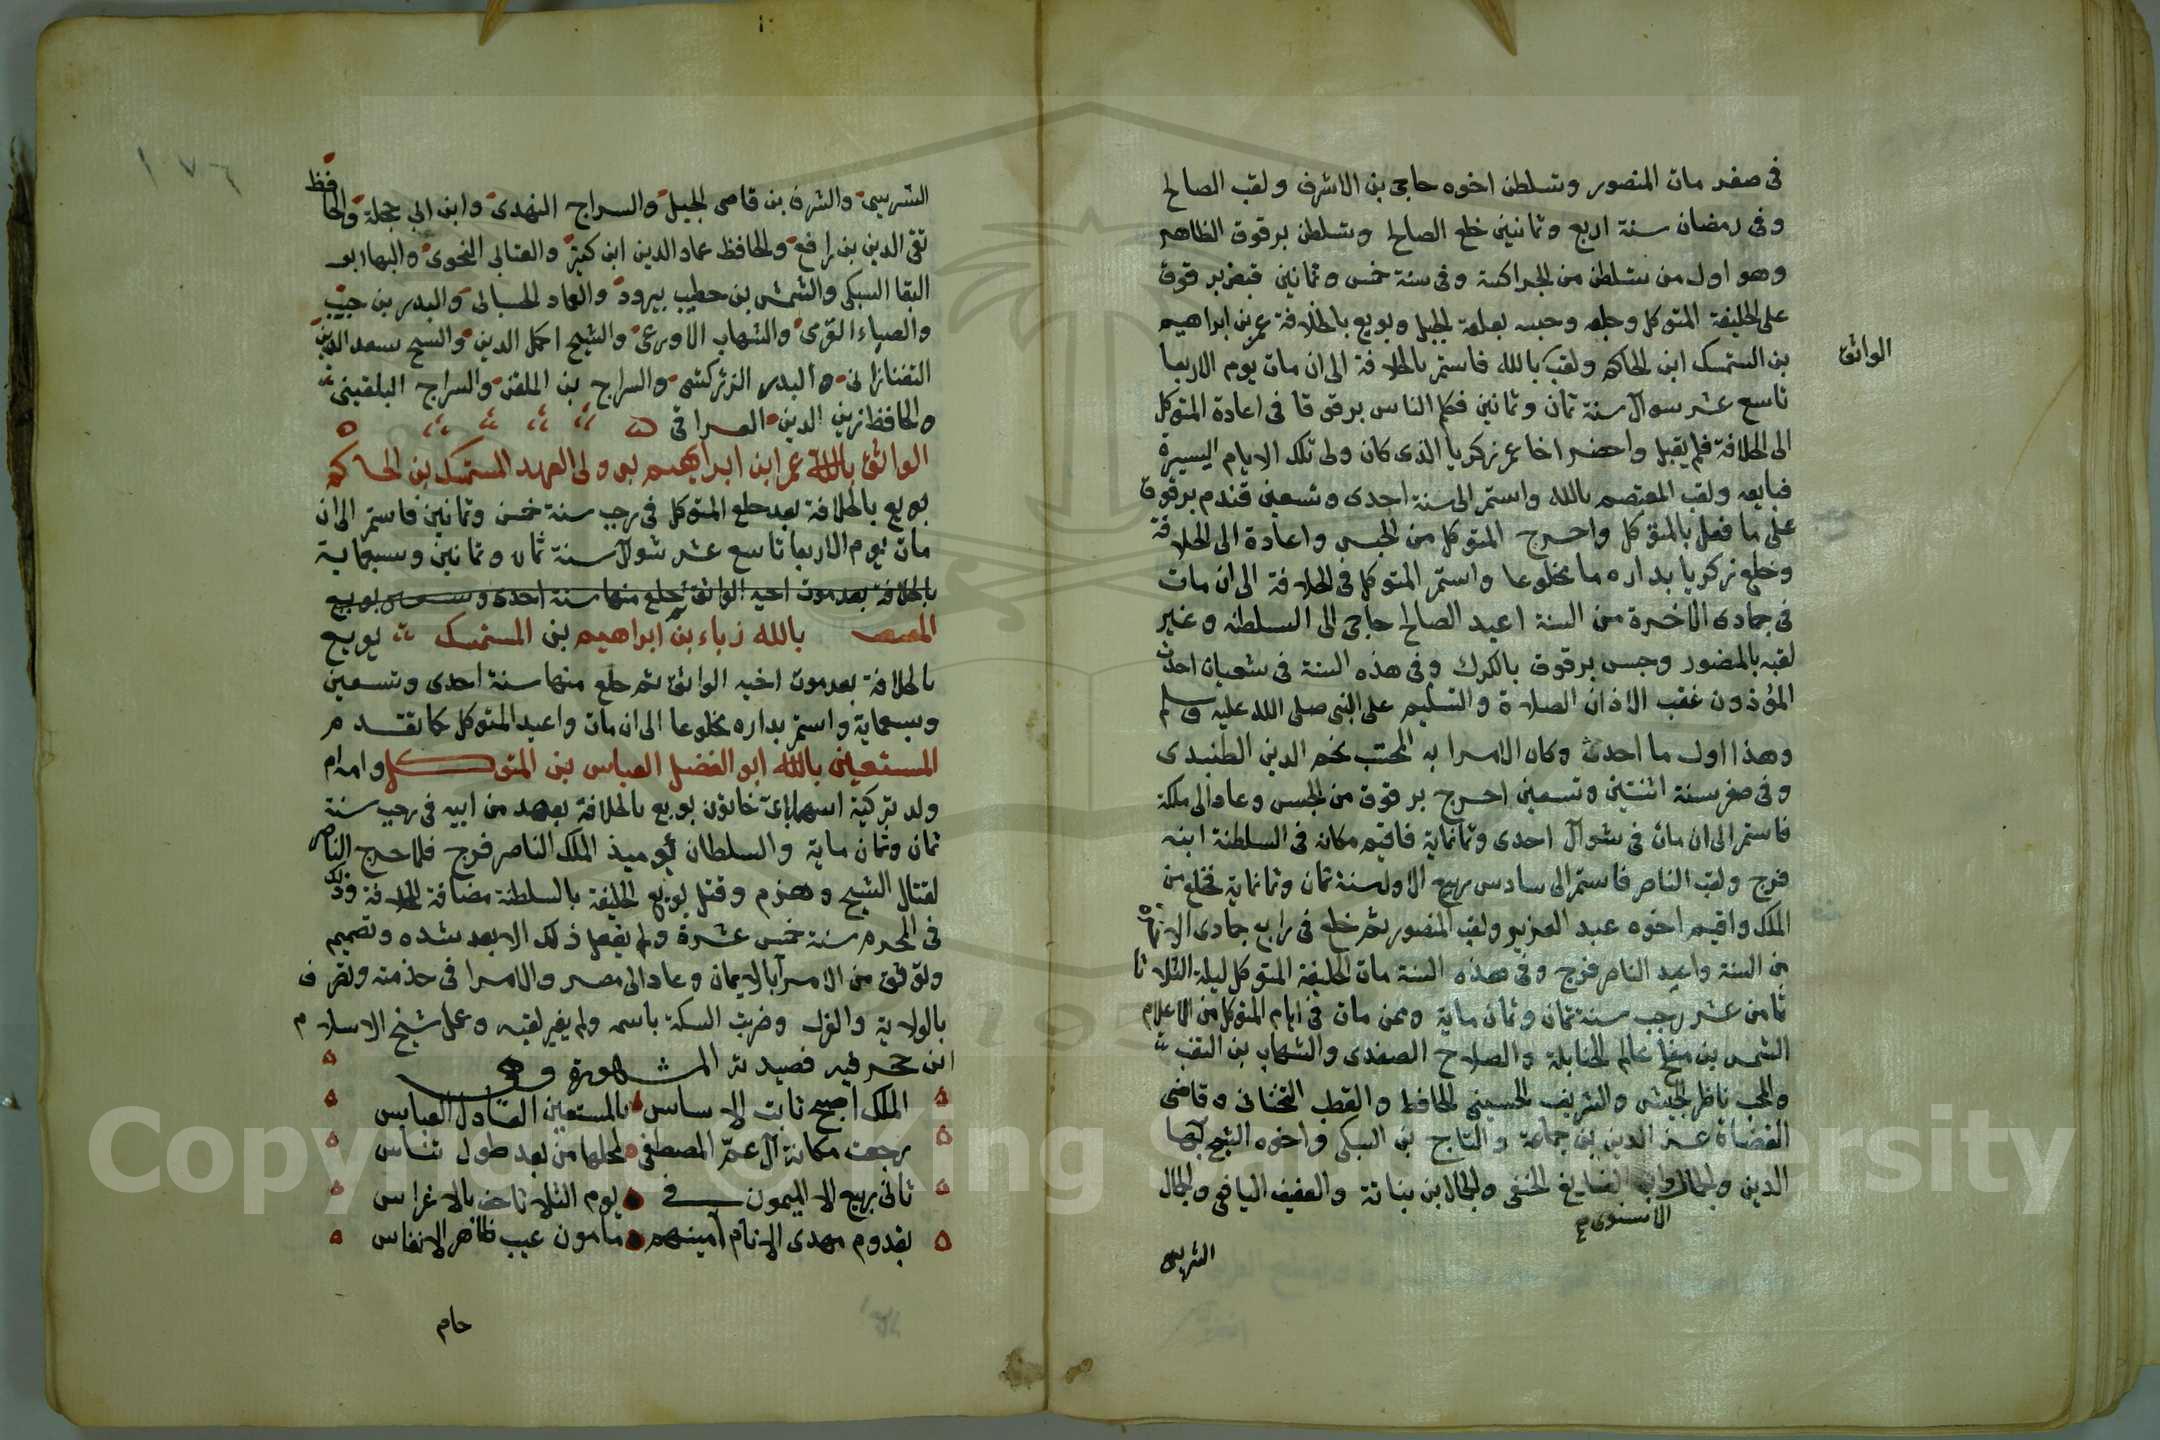 فى صفر مات المنصور وتسلطن اخوه حاجى بن الاشرف ولقب الصالح
وفى رمضان سنة اربع وثمانين خلع الصالح وتسلطن برقوق الظاهر
وهو اول من تسلطن من الجراكسة وفى سنة خمس وثمانين قبض برقوق
على الخليفة المتوكل وخلعه وحبسه بقلعة الجبل وبويع بالخلافة عمر بن ابراهيم
بن المستمسك ابن الحاكم ولقب بالله فاستمر بالخلافة الى ان مات يوم الاربعا
الواثق
تاسع عشر شوال سنة ثمان وثمانين فكلم الناس برقوقا فى اعادة المتوكل
الى الخلافة فلم يقبل واحضر اخا عمر زكريا الذى كان ولى تلك الايام اليسيرة
فبايعه ولقب المعتصم بالله واستمر الى سنة احدى وتسعين فندم برقوق
على ما فعل بالمتوكل واخرج المتوكل من الحبس واعادة الى الخلافة
وخلع زكريا بداره مخلوعا واستمر المتوكل فى الخلافة الى ان مات
فى جمادى الاخرة من السنة اعيد الصالح حاجى الى السلطنه وغير
لقبه بالمنصور وحبس برقوق بالكرك وفى هذه السنة فى شعبان احدث
المؤذنون عقب الاذان الصلاة والتسليم على النبى صلى الله عليه وسلم
وهذا اول ما احدث وكان الامر ا به المحتسب نجم الدين الطنبدى
وفى صفر سنة اثنتين وتسعين اخرج برقوق من الحبس وعاد الى ملكه
فاستمر الى ان مات فى شوال احدى وثمانماية فاقيم مكانه فى السلطنة ابنه
فرج ولقب الناصر فاستمر الى سادس ربيع الاول سنة ثمان وثمانماية فخلع من
الملك واقيم اخوه عبد العزيز ولقب المنصور ثم خلع فى رابع جمادى الاخرة
من السنة واعيد الناصر فرج وفى هذه السنة مات الخليفة المتوكل ليلة الثلاثا
ثامن عشر رجب سنة ثمان وثمان ماية وممن مات فى ايام المتوكل من الاعلام
الشمس بن مفلح عالم الحنابلة والصلاح الصفدى والشهاب بن النقيب
والمحب ناظر الجيش والشريف الحسينى الحافظ والقطب التحتانى وقاضى
القضاة عز الدين بن جماعة والتاج بن السبكى واخوه الشيخ بها
الدين والجمال وابن الصايغ الحنفى والجمال بن نباتة والعفيف اليافعى والجمال
الاسنوى
الشريسى
١٧٦
الشريسى والشرف بن قاضى الجبل والسراج الهندى وابن ابى حجلة والحافظ
تقى الدين بن رافع والحافظ عماد الدين ابن كثير والعتابى النحوى والبها ابو
البقا السبكى والشمس بن خطيب بيرود والعماد الحسبانى والبدر بن حبيب
والضياء القرمى والشهاب الاذرعى والشيخ اكمل الدين والشيخ سعد الدين
التفتازانى والبدر الزركشى والسراج بن الملقن والسراج البلقينى
والحافظ زين الدين العراقى
الواثق بالله عمر ابن ابراهيم بن ولى العهد المستمسك بن الحاكم
بويع بالخلافة بعد خلع المتوكل فى رجب سنة خمس وثمانين فاستمر الى ان
مات يوم الاربعا تاسع عشر شوال سنة ثمان وثمانين وسبعماية
بالخلافة بعد موت اخيه الواثق ثم خلع منها سنة احدى وتسعين بويع
المعتصم بالله زكرياء بن ابراهيم بن المستمسك بويع
بالخلافة بعد موت اخيه الواثق ثم خلع منها سنة احدى وتسعين
وسبعماية واستمر بداره مخلوعا الى ان مات واعيد المتوكل كما تقدم
المستعين بالله ابو الفضل العباس بن المتوكل وامه ام
ولد تركية اسمها باى خاتون بويع بالخلافة بعهد من ابيه فى رجب سنة
ثمان وثمان ماية والسلطان يوميذ الملك الناصر فرج فلما خرج الناصر
لقتال الشيخ وهزم وقتل بويع الخليفة بالسلطنة مضافة للخلافة وذلك
فى المحرم سنة خمس عشرة ولم يفعل ذلك الا بعد شده وتصميم
وتوثق من الامرا بالايمان وعاد الى مصر والامرا فى خدمته وتصرف
بالولاية والعزل وضربت السكة باسمه ولم يغير لقبه وعمل شيخ الاسلام
ابن حجر فيه قصيدته المشهورة وهى
الملك اصبح ثابت الاساس بالمستعين العادل العباس
رجعت مكانة آل عم المصطفى لمحلها من بعد طول تناس
ثانى ربيع الا الميمون فى يوم الثلاثا حف بالاعراس
بقدوم مهدى الانام امينهم مامون عيب طاهر الانفاس
حام